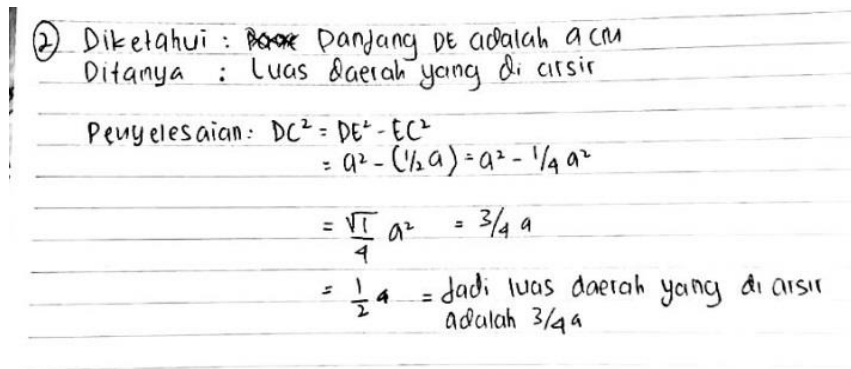 ② Diketahui : Panjang DE adalah a cm
Ditanya : Luas daerah yang di arsir
Penyelesaian : DC² = DE² - EC²
= a² - (1/2 a) = a² - 1/4 a²
= √1/4 a² = 3/4 a
= 1/2 a = Jadi luas daerah yang di arsir
adalah 3/4 a